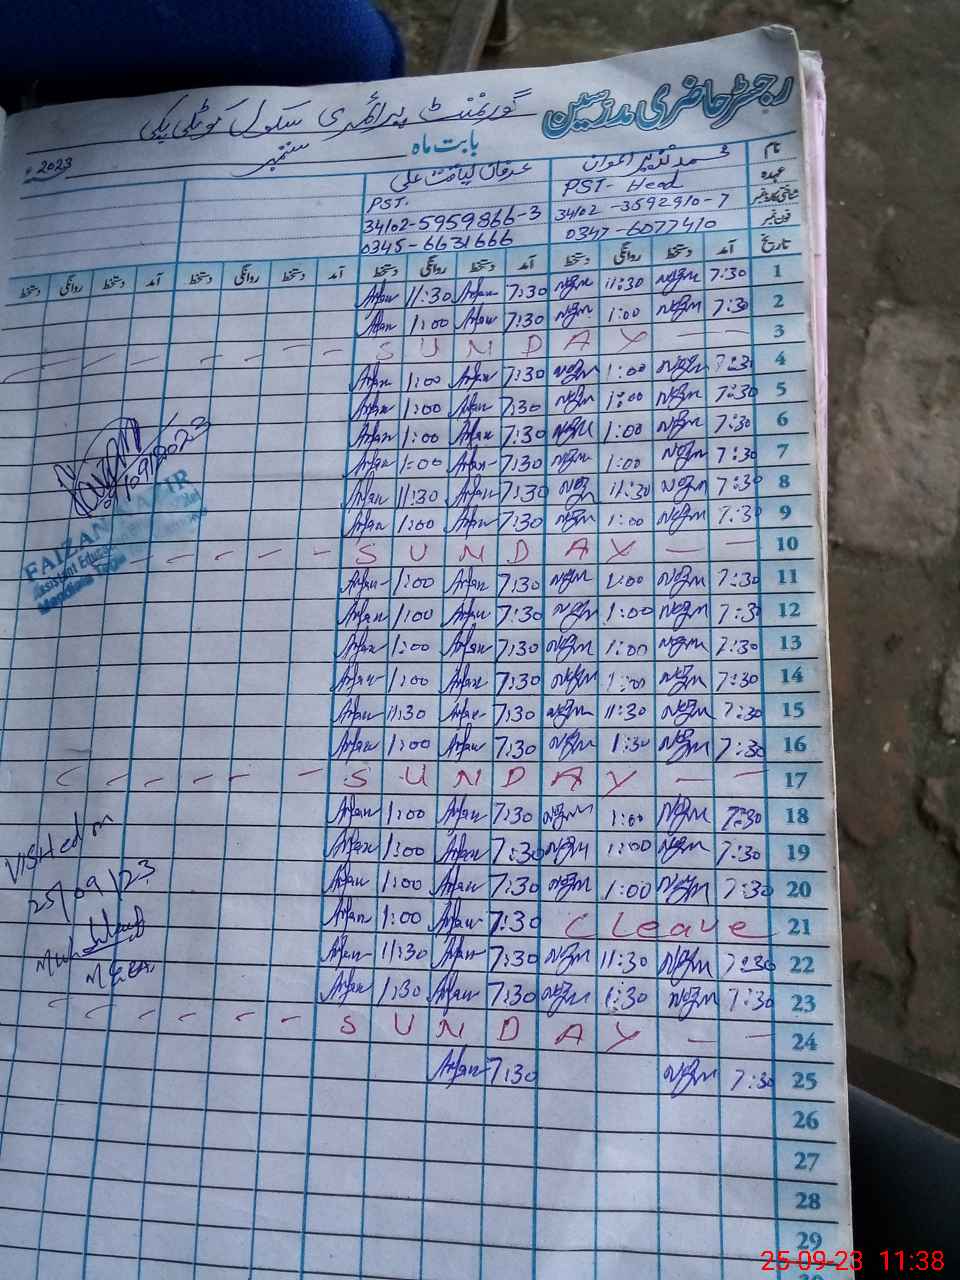 رجسٹر حاضری مدرسین
گورنمنٹ پرائمری سکول
بابت ماہ ستمبر 2023ء
نام محمد نذیر اعوان عرفان لیاقت علی
عہدہ PST- Head PST.
شناختی کارڈ نمبر 34102-3592910-7 34102-5959866-3
فون نمبر 0347-6077410 0345-6631666
تاریخ آمد دستخط روانگی دستخط آمد دستخط روانگی دستخط آمد دستخط روانگی دستخط آمد دستخط روانگی دستخط
1 7:30 11:30 7:30 Arfan 11:30 Arfan
2 7:30 1:00 7:30 Arfan 1:00 Arfan
3 SUNDAY
4 7:30 1:00 7:30 Arfan 1:00 Arfan
5 7:30 1:00 7:30 Arfan 1:00 Arfan
6 7:30 1:00 7:30 Arfan 1:00 Arfan
7 7:30 1:00 7:30 Arfan 1:00 Arfan
8 7:30 11:30 7:30 Arfan 11:30 Arfan
9 7:30 1:00 7:30 Arfan 1:00 Arfan
10 SUNDAY
11 7:30 1:00 7:30 Arfan 1:00 Arfan
12 7:30 1:00 7:30 Arfan 1:00 Arfan
13 7:30 1:00 7:30 Arfan 1:00 Arfan
14 7:30 1:00 7:30 Arfan 1:00 Arfan
15 7:30 11:30 7:30 Arfan 11:30 Arfan
16 7:30 1:30 7:30 Arfan 1:00 Arfan
17 SUNDAY
18 7:30 1:00 7:30 Arfan 1:00 Arfan
19 7:30 1:00 7:30 Arfan 1:00 Arfan
20 7:30 1:00 7:30 Arfan 1:00 Arfan
21 C Leave 7:30 Arfan 1:00 Arfan
22 7:30 11:30 7:30 Arfan 11:30 Arfan
23 7:30 1:30 7:30 Arfan 1:30 Arfan
24 SUNDAY
25 7:30 7:30 Arfan
26
27
28
29
FAIZAN
Assistant
Visited on
25/09/23
MEA.
25-09-23 11:38